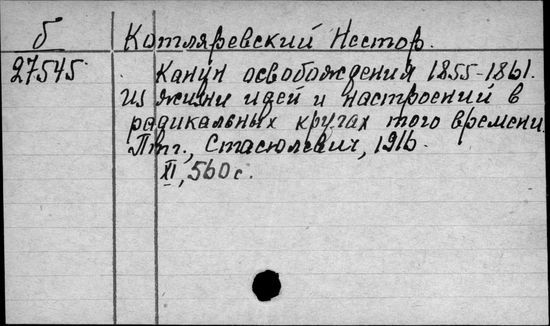 б Котляревский Нестор.
27545 Канун освобождения 1855-1861.
Из жизни идей и настроений в
радикальных кругах того времени
Птг., Стасюлевич, 1916.
XI, 560 с.